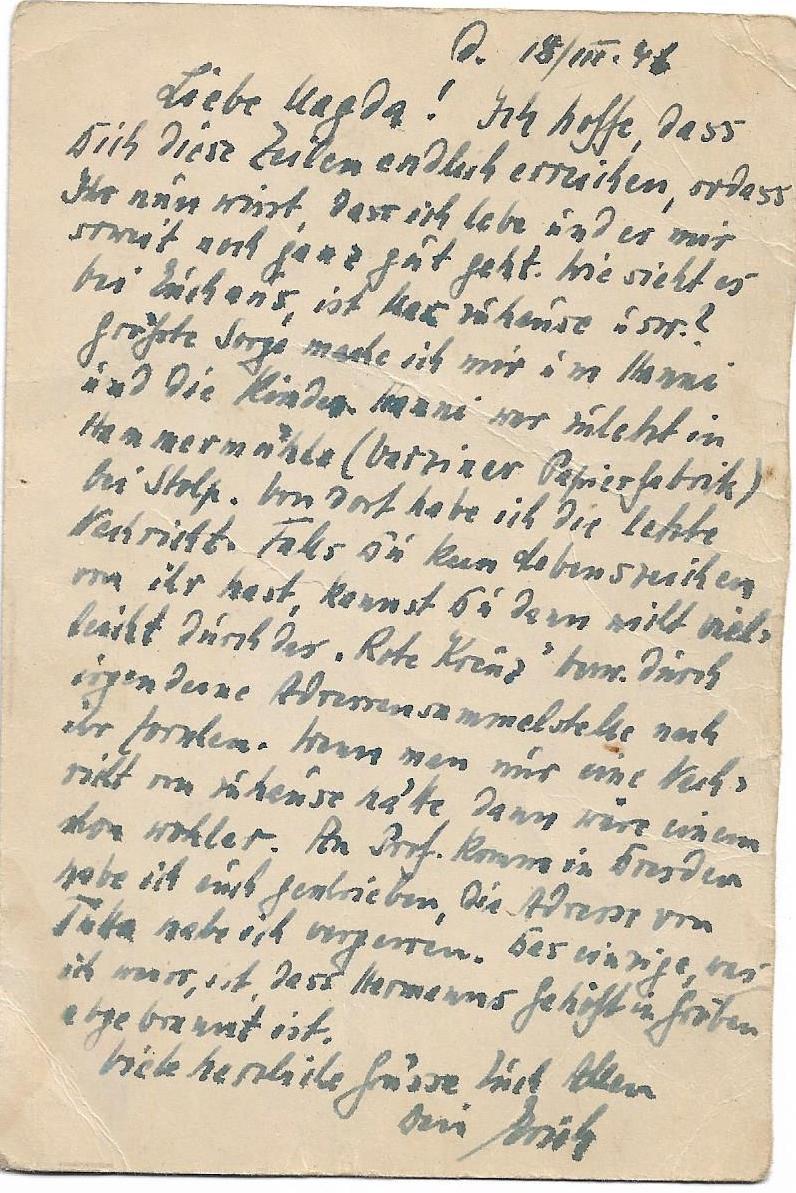 d. 18/III. 46
Liebe Magda! Ich hoffe, dass
Dich diese Zeilen endlich erreichen, sodass
Ihr nun wisst, dass ich lebe und es mir
soweit noch ganz gut geht. Wie sieht es
bei Euch aus, ist Max zuhause usw.?
Größte Sorge mache ich mir um Hanni
und die Kinder. Hanni war zuletzt in
Hammermühle (Varziner Papierfabrik)
bei Stolp. Von dort habe ich die letzte
Nachricht. Falls Du kein Lebenszeichen
von ihr hast, kannst Du dann nicht viel-
leicht durch das "Rote Kreuz" bzw. durch
irgendeine Adressensammelstelle nach
ihr forschen. Wenn man nur eine Nach-
richt von zuhause hätte, dann wäre einem
schon wohler. An Prof. in Dresden
habe ich auch geschrieben, die Adresse von
habe ich vergessen. Das einzige, was
ich weiss, ist, dass Hermanns Gehöft in Gröben
abgebrannt ist.
Viele herzliche Grüsse Euch Allen
Dein Erich